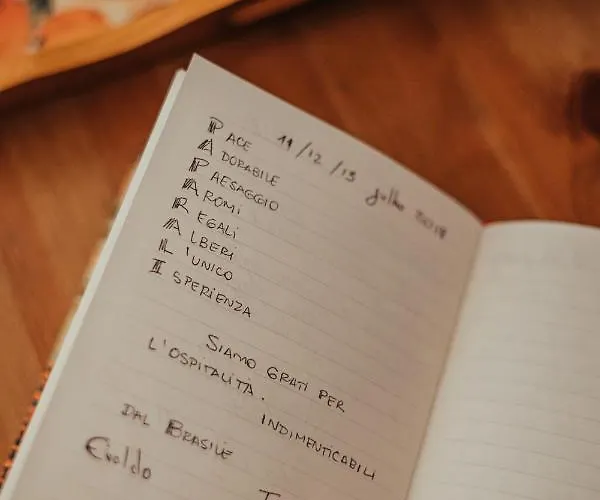 11/12/13 Julho 2018
PACE
ADORABILE
PAESAGGIO
AROMI
REGALI
ALBERI
L'UNICO
ISPERIENZA
SIAMO GRATI PER
L'OSPITALITÀ.
INDIMENTICABILI
DAL BRASILE